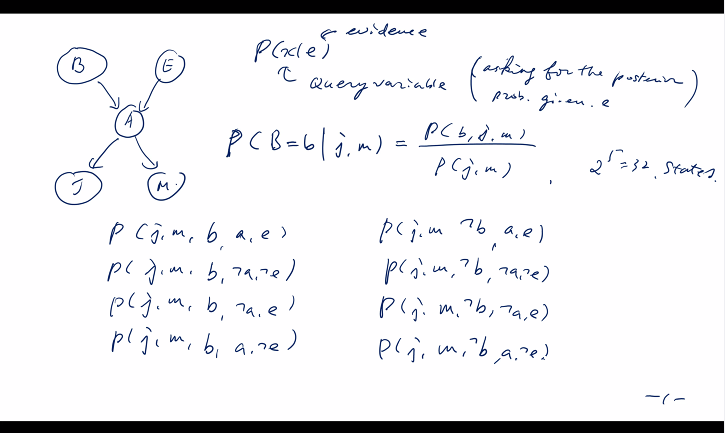 B
E
A
J
M.
P(x|e) evidence
Query variable (asking for the posterior
prob. given. e)
P(B=b|j,m) = P(b,j,m) / P(j,m)
2^5=32. States.
P(j,m,b,a,e)
P(j,m,b,¬a,¬e)
P(j,m,b,¬a,e)
P(j,m,b,a,¬e)
P(j,m,¬b,a,e)
P(j,m,¬b,¬a,¬e)
P(j,m,¬b,¬a,e)
P(j,m,¬b,a,¬e)
-1-